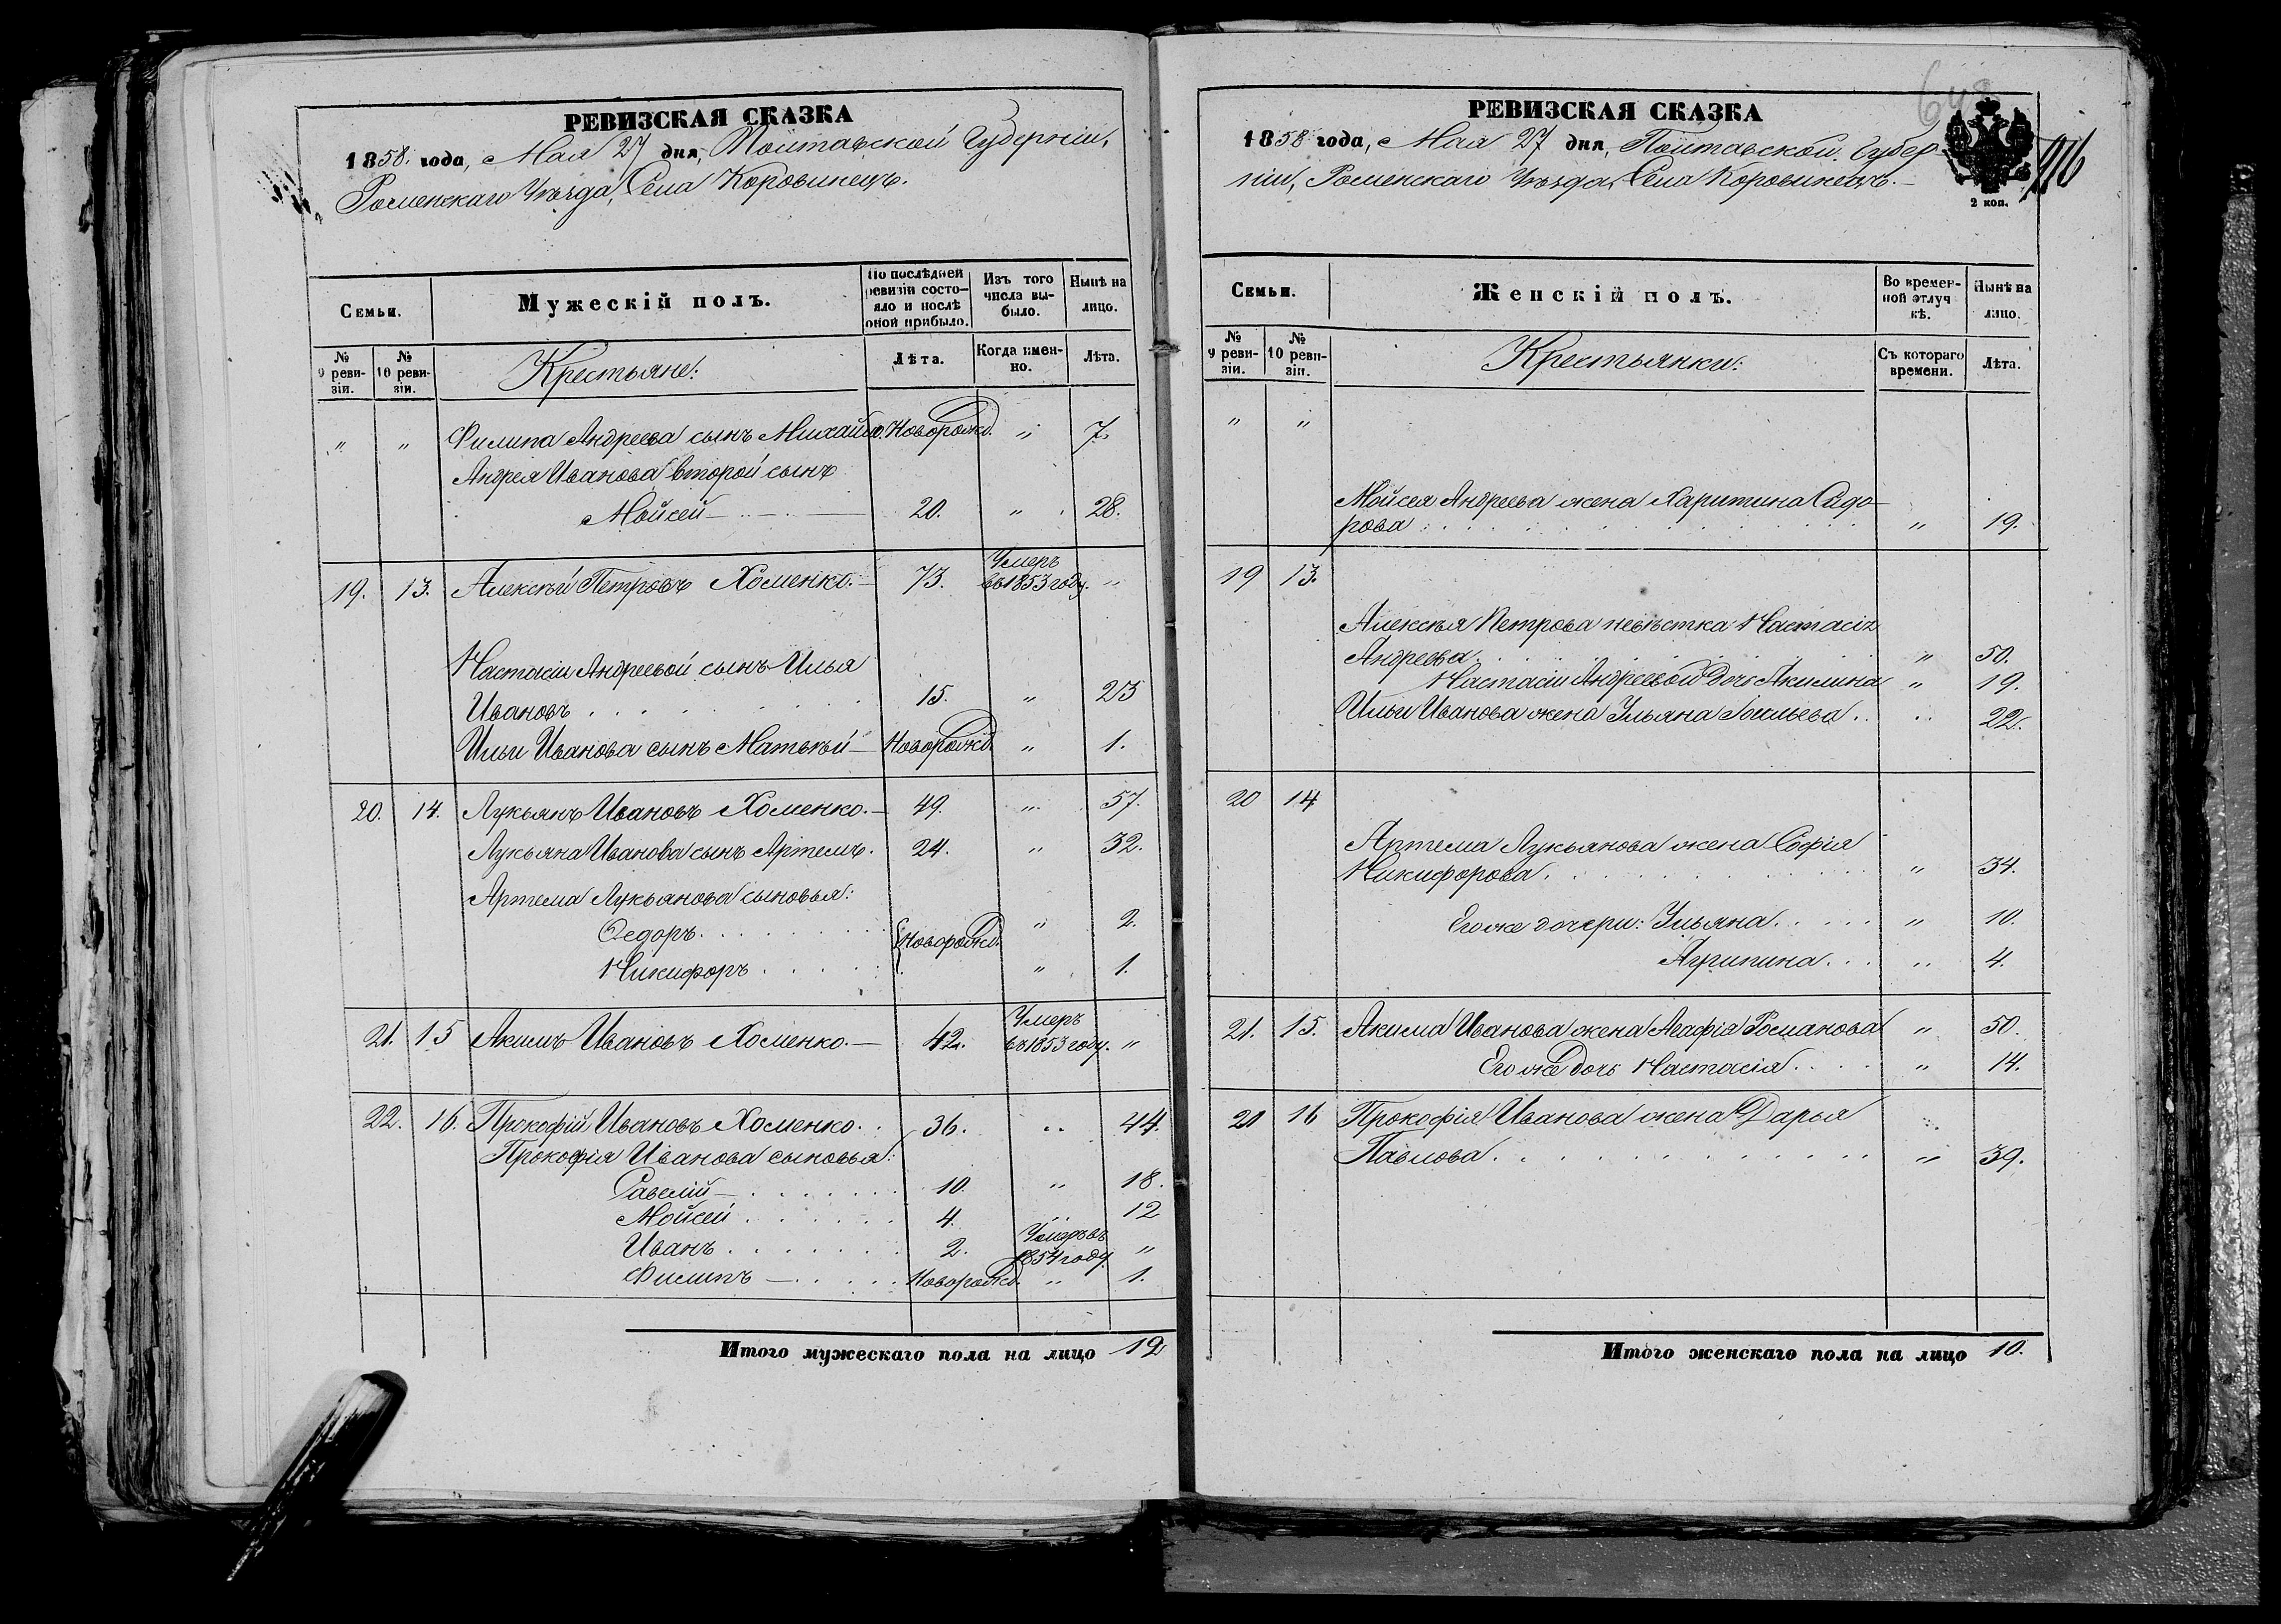 РЕВИЗСКАЯ СКАЗКА
1858 года, Мая 27 дня, Полтавской Губерніи,
Роменскаго Уѣзда, Села Коровинецъ.
Семьи.
Мужескій полъ.
По послѣдней ревизіи состояло и послѣ оной прибыло.
Изъ того числа выбыло.
Нынѣ на лицо.
№ 9 ревизіи.
№ 10 ревизіи.
Крестьяне:
Лѣта.
Когда именно.
Лѣта.
" " Филипа Андреева сынъ Михайло. Новорожд. " 7.
Андрея Иванова второй сынъ
Мойсей 20. " 28.
19. 13. Алексѣй Петровъ Хоменко. 73. Умеръ въ 1853 году. "
Настасіи Андреевой сынъ Илья
Ивановъ 15. " 23
Ильи Иванова сынъ Матвѣй Новорожд. " 1.
20. 14. Лукьянъ Ивановъ Хоменко. 49. " 57.
Лукьяна Иванова сынъ Артемъ. 24. " 32.
Артема Лукьянова сыновья:
Ѳедоръ { Новорожд. " 2.
Никифоръ " 1.
21. 15 Акимъ Ивановъ Хоменко. 42. Умеръ въ 1853 году. "
22. 16. Прокофій Ивановъ Хоменко. 36. " 44.
Прокофія Иванова сыновья:
Савелій 10. " 18.
Мойсей 4. " 12
Иванъ 2. Умеръ въ 1854 году "
Филипъ Новорожд. " 1.
Итого мужескаго пола на лицо 12
648
РЕВИЗСКАЯ СКАЗКА
1858 года, Мая 27 дня, Полтавской Губер-
ніи, Роменскаго Уѣзда, Села Коровинецъ.
2 коп.
Семьи.
Женскій полъ.
Во временной отлучкѣ.
Нынѣ на лицо.
№ 9 ревизіи.
№ 10 ревизіи.
Крестьянки:
Съ котораго времени.
Лѣта.
" "
Мойсея Андреева жена Харитина Сидо-
рова " 19.
19 13.
Алексѣя Петрова невѣстка Настасія
Андреева " 50.
Настасіи Андреевой дочь Акилина " 19.
Ильи Иванова жена Ульяна " 22.
20 14
Артема Лукьянова жена Софія
Никифорова " 34.
Его же дочери: Ульяна " 10.
Агрипина " 4.
21. 15. Акима Иванова жена Агафія Романова " 50.
Его же дочь Настасія " 14.
21 16 Прокофія Иванова жена Дарья
Павлова " 39.
Итого женскаго пола на лицо 10.